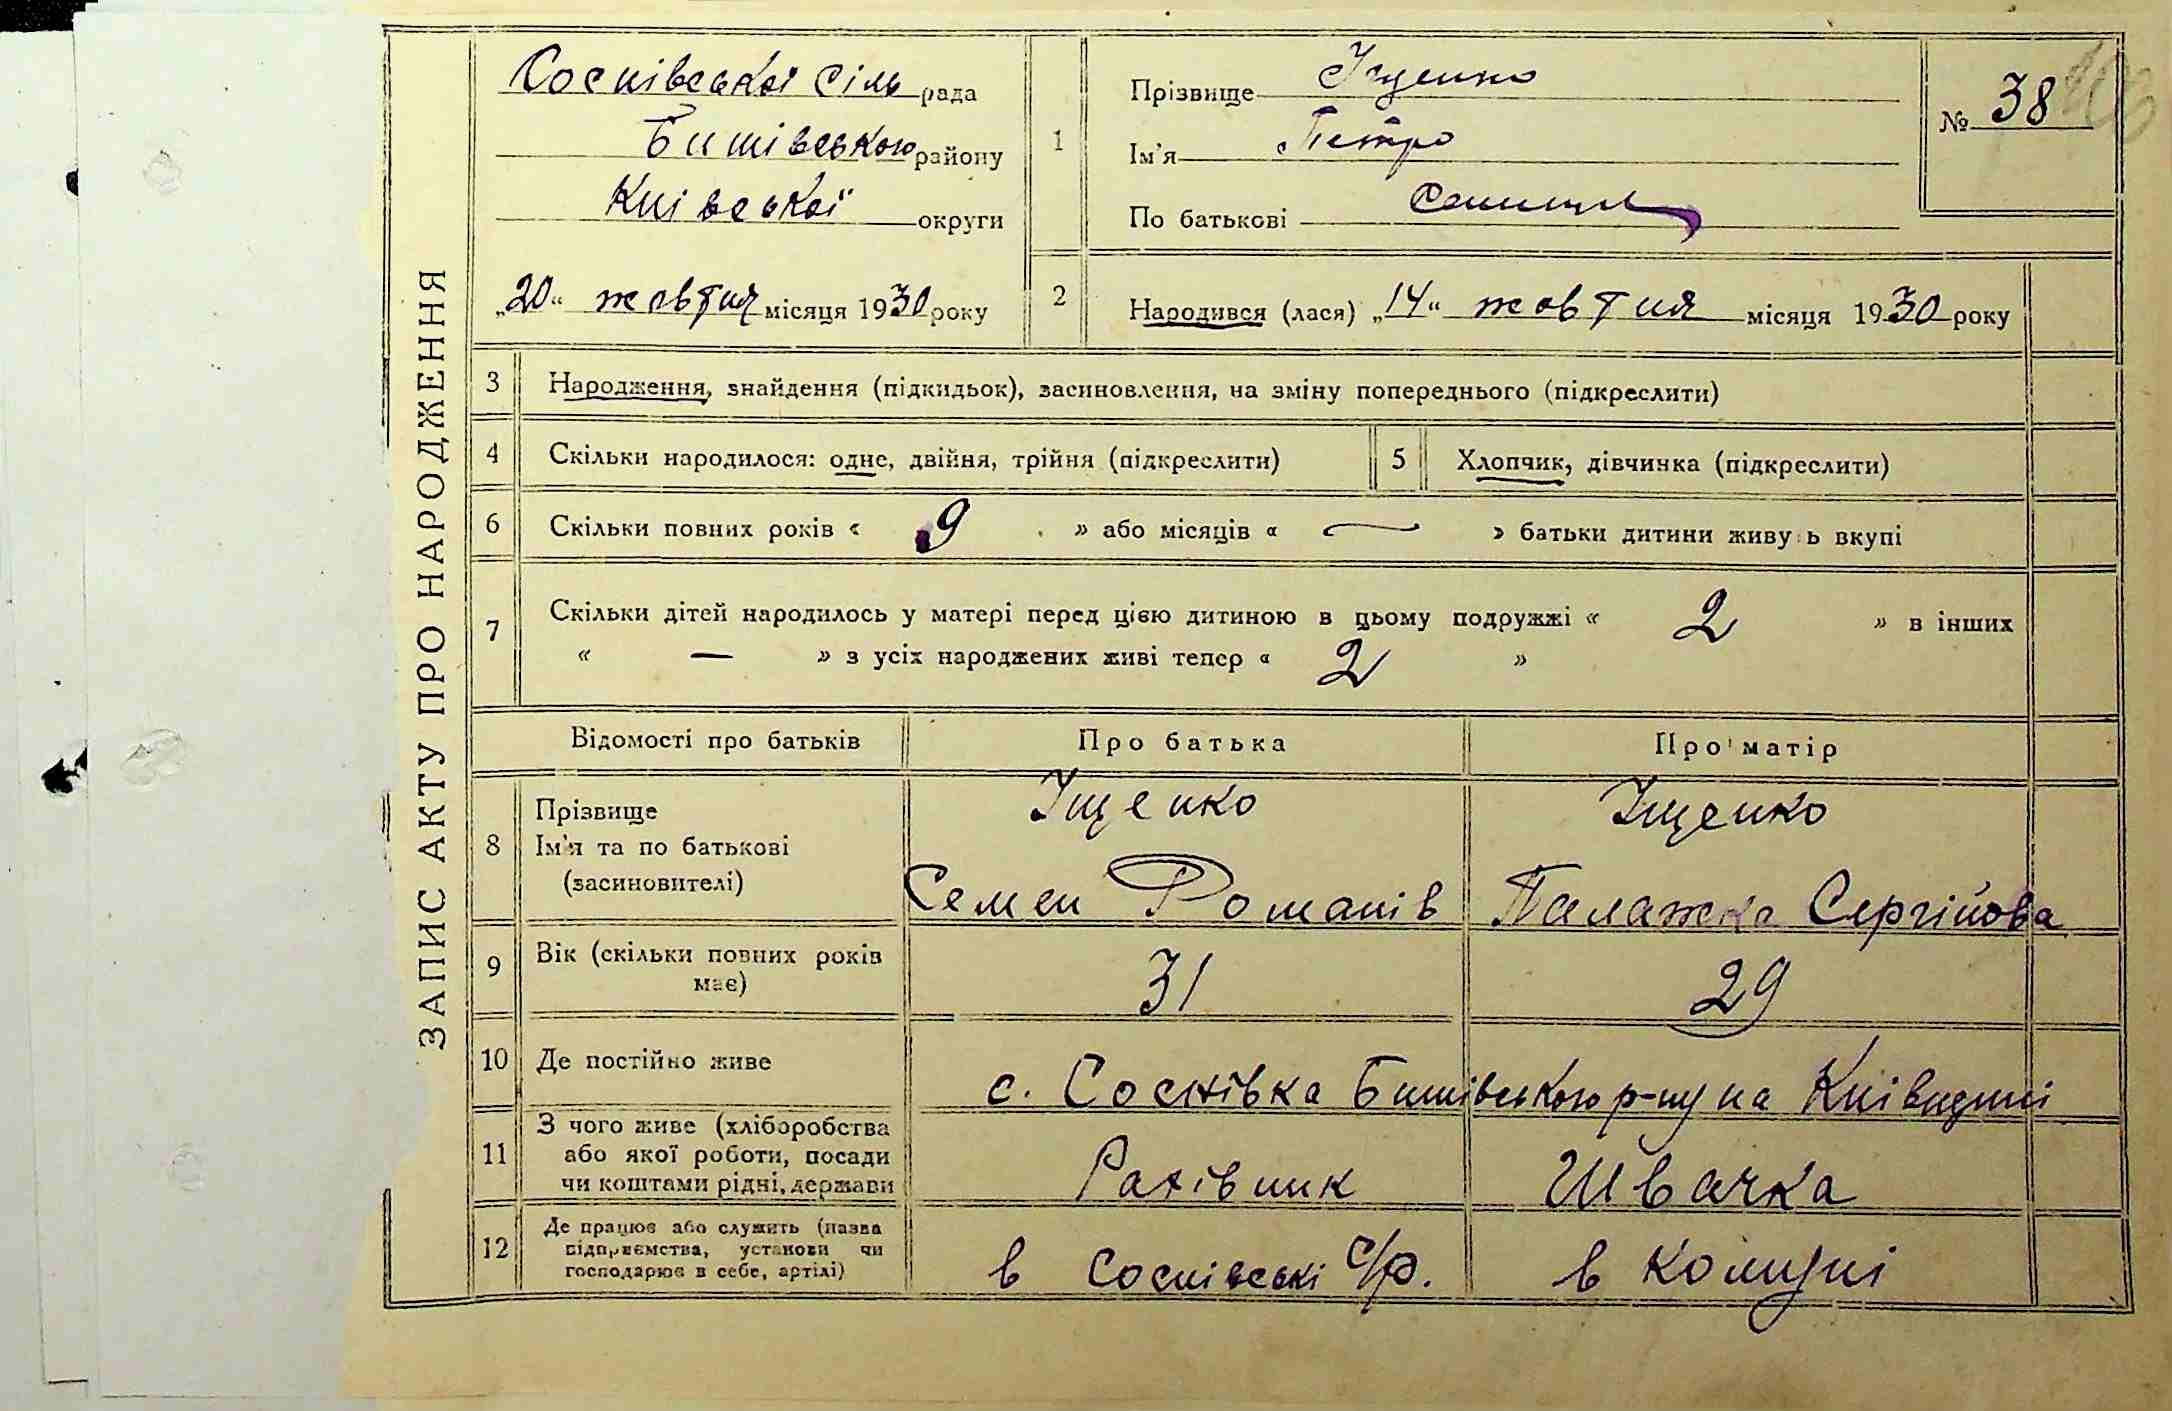 ЗАПИС АКТУ ПРО НАРОДЖЕННЯ
Соснівської сіль рада
Бишівською району
Київської округи
„20“ жовтня місяця 1930 року
1
Прізвище Іщенко
Ім'я Петро
По батькові
№ 38
2
Народився (лася) „14“ жовтня місяця 1930 року
3 Народження, знайдення (підкидьок), засиновлення, на зміну попереднього (підкреслити)
4 Скільки народилося: одне, двійня, трійня (підкреслити)
5 Хлопчик, дівчинка (підкреслити)
6 Скільки повних років « 9 » або місяців « — » батьки дитини живу ь вкупі
7 Скільки дітей народилось у матері перед цією дитиною в цьому подружжі « 2 » в інших
« — » з усіх народжених живі тепер « 2 »
Відомості про батьків Про батька Про матір
8
Прізвище
Ім'я та по батькові
(засиновителі)
Іщенко
Семен Романів
Іщенко
Палажка Сергійова
9 Вік (скільки повних років
має)
31
29
10 Де постійно живе
с. Соснівка Бишівською р-ну на Київщині
11
З чого живе (хліборобства
або якої роботи, посади
чи коштами рідні, держави
Рахівник
Швачка
12
Де працює або служить (назва
підприємства, установи чи
господарює в себе, артілі)
в Соснівські с/р.
в комуні